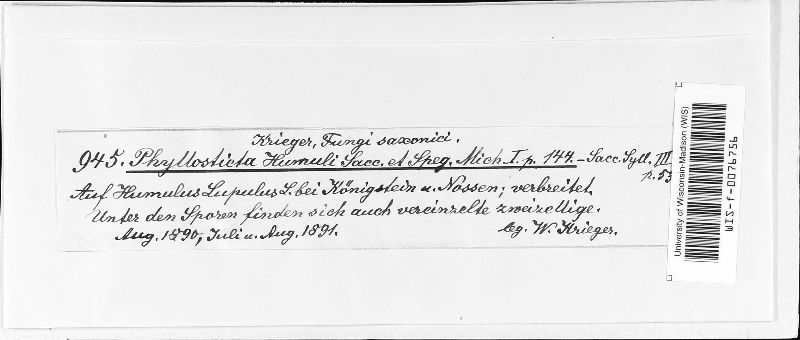 Krieger, Fungi saxonici.
945. Phyllosticta Humuli Sacc. et Speg. Mich. I. p. 144. – Sacc. Syll. III p. 53
Auf Humulus Lupulus L. bei Königstein u. Nossen; verbreitet.
Unter den Sporen finden sich auch vereinzelte zweizellige.
Aug. 1890, Juli u. Aug. 1891. leg. W. Krieger.
University of Wisconsin-Madison (WIS)
WIS-f-0076756